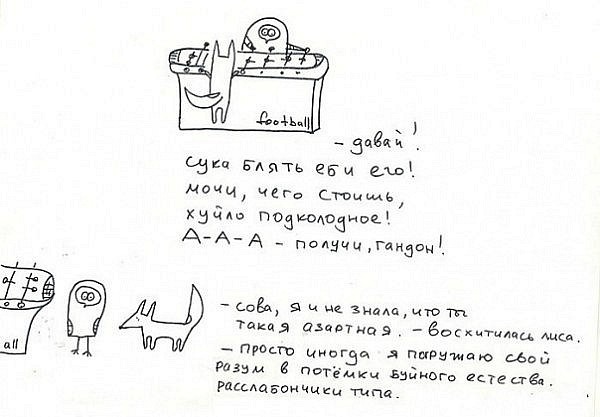 football
- давай!
сука блять еби его!
мочи, чего стоишь,
хуйло подколодное!
А-А-А - получи, гандон!
all
- сова, я и не знала, что ты
такая азартная. - восхитилась лиса.
- просто иногда я погружаю свой
разум в потёмки буйного естества.
расслабончики типа.